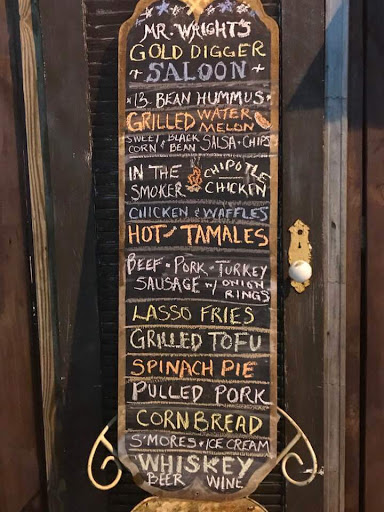 MR. WRIGHT'S
GOLD DIGGER
SALOON
13 BEAN HUMMUS
GRILLED WATER
MELON
SWEET BLACK
CORN & BEAN SALSA & CHIPS
IN THE CHIPOTLE
SMOKER CHICKEN
CHICKEN & WAFFLES
HOT TAMALES
BEEF • PORK • TURKEY
SAUSAGE W/ ONION
RINGS
LASSO FRIES
GRILLED TOFU
SPINACH PIE
PULLED PORK
CORN BREAD
S'MORES • ICE CREAM
WHISKEY
BEER WINE